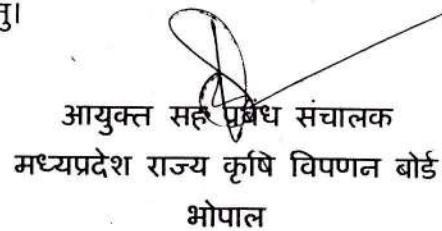 नु।
आयुक्त सह प्रबंध संचालक
मध्यप्रदेश राज्य कृषि विपणन बोर्ड
भोपाल